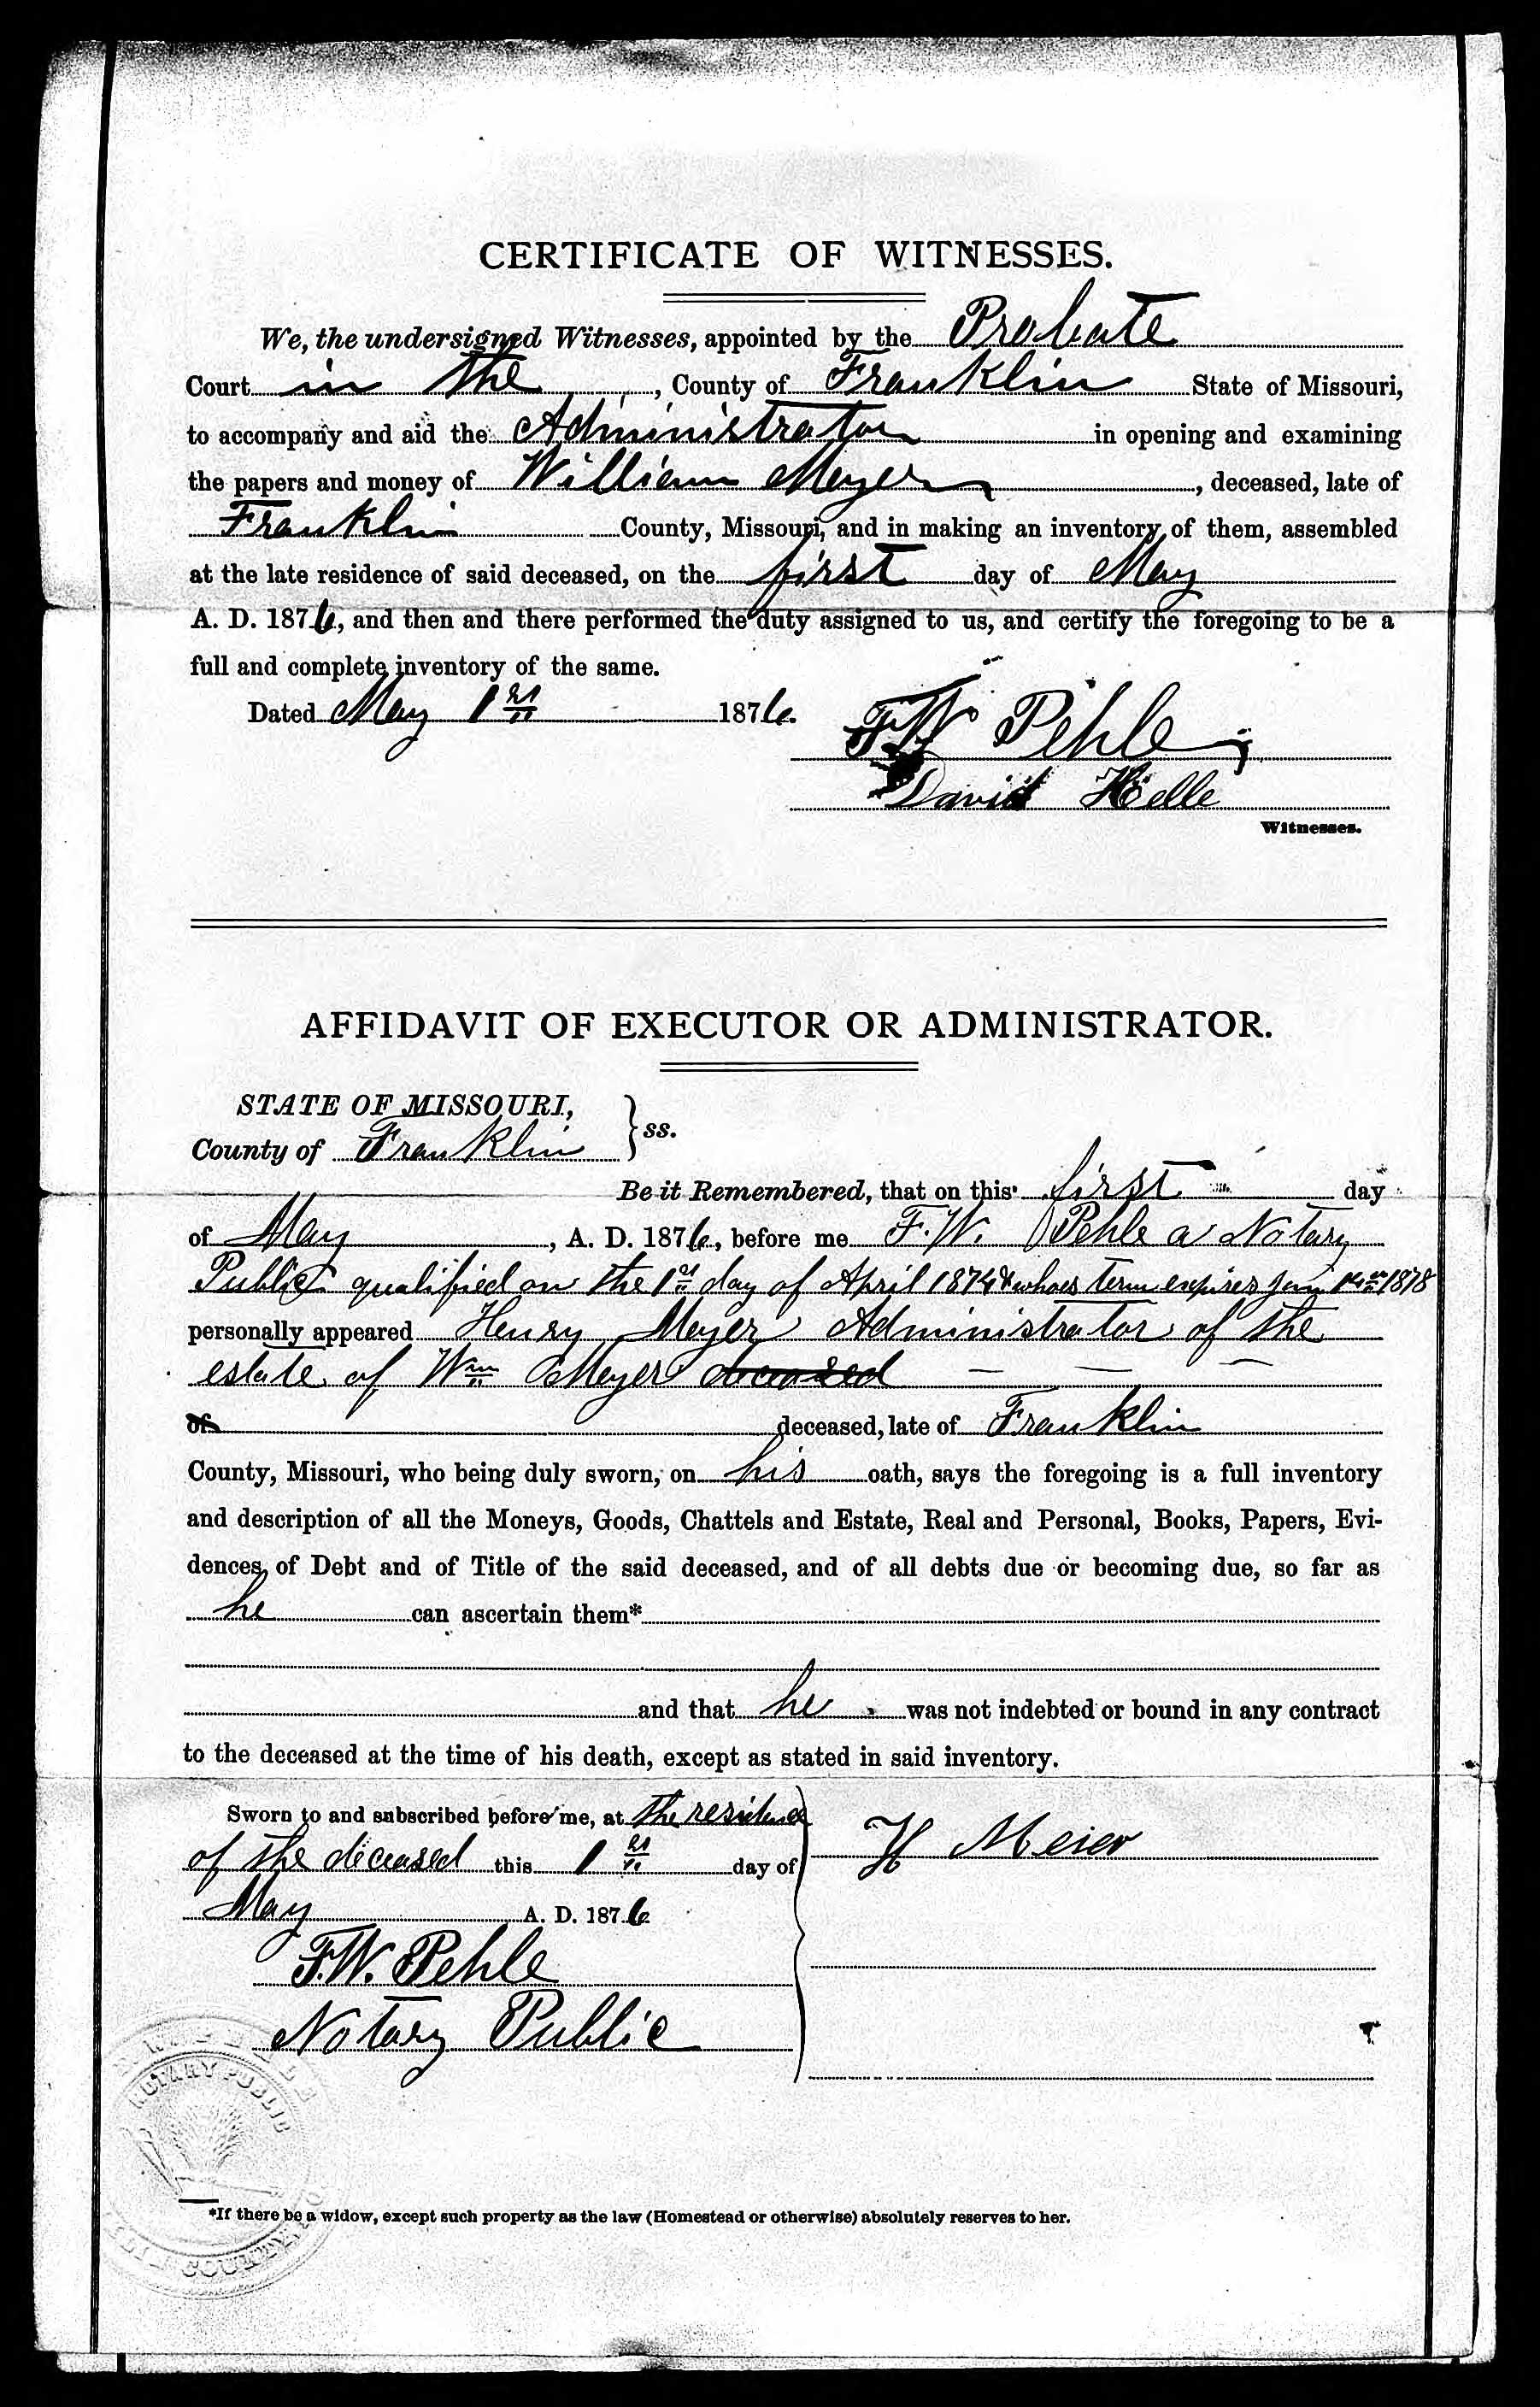 CERTIFICATE OF WITNESSES.
We, the undersigned Witnesses, appointed by the Probate
Court in the, County of Franklin State of Missouri,
to accompany and aid the Administrator in opening and examining
the papers and money of William Meyer, deceased, late of
Franklin County, Missouri, and in making an inventory of them, assembled
at the late residence of said deceased, on the first day of May
A. D. 1876, and then and there performed the duty assigned to us, and certify the foregoing to be a
full and complete inventory of the same.
Dated May 1st 1876.
F W Pehle
David Helle
Witnesses.
AFFIDAVIT OF EXECUTOR OR ADMINISTRATOR.
STATE OF MISSOURI,
County of Franklin } ss.
Be it Remembered, that on this first day
of May, A. D. 1876, before me F. W. Pehle a Notary
Public qualified on the 1st day of April 1874 & whoes term expires 1878
personally appeared Henry Meyer Administrator of the
estate of Wm Meyer deceased
of deceased, late of Franklin
County, Missouri, who being duly sworn, on his oath, says the foregoing is a full inventory
and description of all the Moneys, Goods, Chattels and Estate, Real and Personal, Books, Papers, Evi-
dences, of Debt and of Title of the said deceased, and of all debts due or becoming due, so far as
he can ascertain them*
and that he was not indebted or bound in any contract
to the deceased at the time of his death, except as stated in said inventory.
Sworn to and subscribed before me, at the residence
of the deceased this 1st day of
May A. D. 1876
H Meier
F. W. Pehle
Notary Public
NOTARY PUBLIC
COUNTY
*If there be a widow, except such property as the law (Homestead or otherwise) absolutely reserves to her.